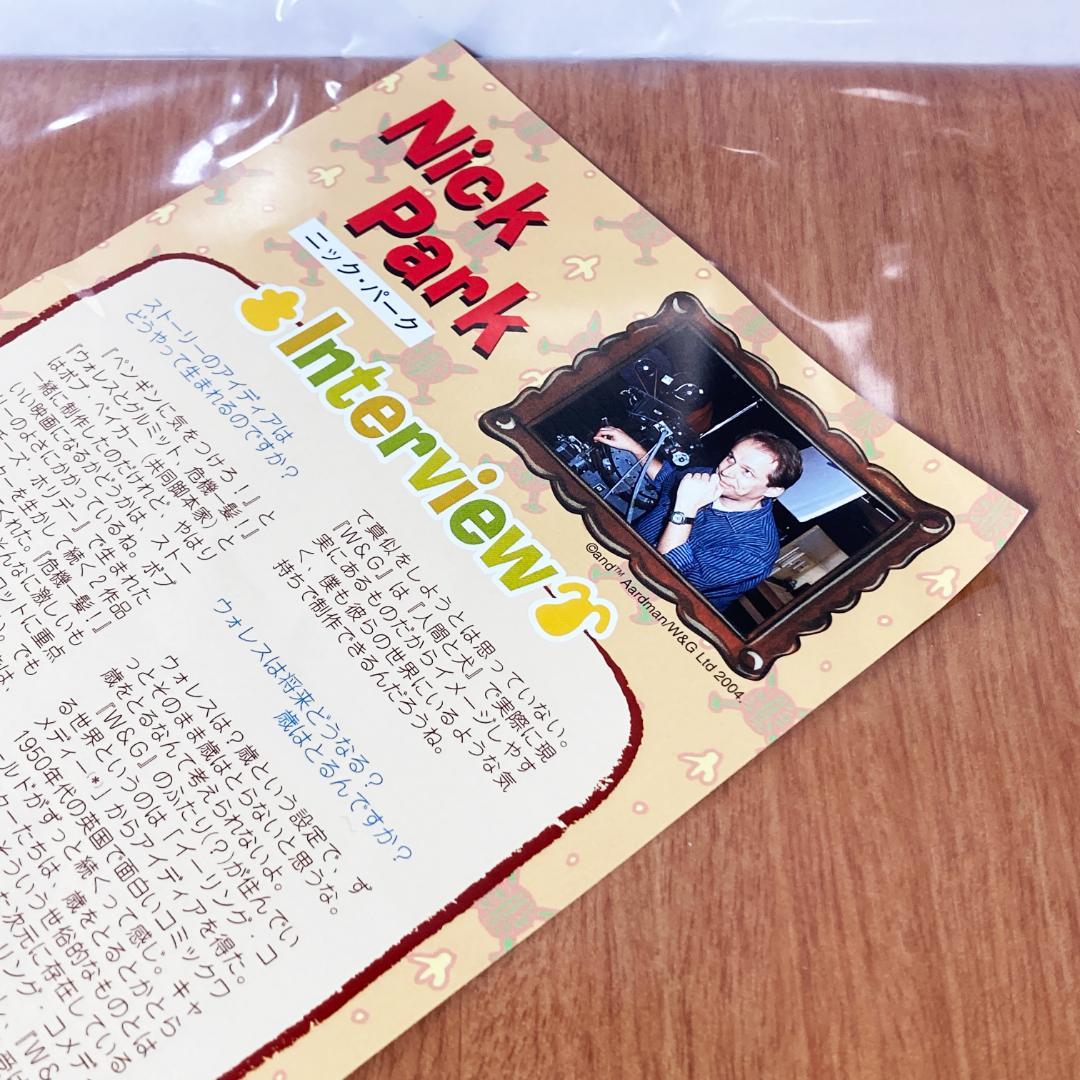 Nick
Park
ニック・パーク
Interview
©and™ Aardman/W&G Ltd 2004.
ストーリーのアイディアは
どうやって生まれるのですか？
『ペンギンに気をつけろ！』と
『ウォレスとグルミット 危機一髪！』
はボブ・ベイカー（共同脚本家）と
一緒に制作したのだけれど、やはり
いい映画になるかどうかは、ストー
リーのよさにかかっているね。ボブ
ズ・ホリデー』で生まれた
ターを生かして続く2作品
くれた。『危機一髪！』
んなに激しいも
ットに重点
でも
は、
て真似をしようとは思っていない。
『W&G』は『人間と犬』で実際に現
実にあるものだからイメージしやす
く、僕も彼らの世界にいるような気
持ちで制作できるんだろうね。
ウォレスは将来どうなる？
歳はとるんですか？
ウォレスは？歳という設定で、ず
っとそのまま歳はとらないと思うな。
歳をとるなんて考えられないよ。
『W&G』のふたり(?)が住んでい
る世界というのは「イーリング・コ
メディー*」からアイディアを得た。
1950年代の英国で面白いコミックワ
ールドがずっと続くって感じ。キャ
ターたちは、歳をとるとかとら
そういう世俗的なものとは
次元に存在している
リング・コメデ
『W&